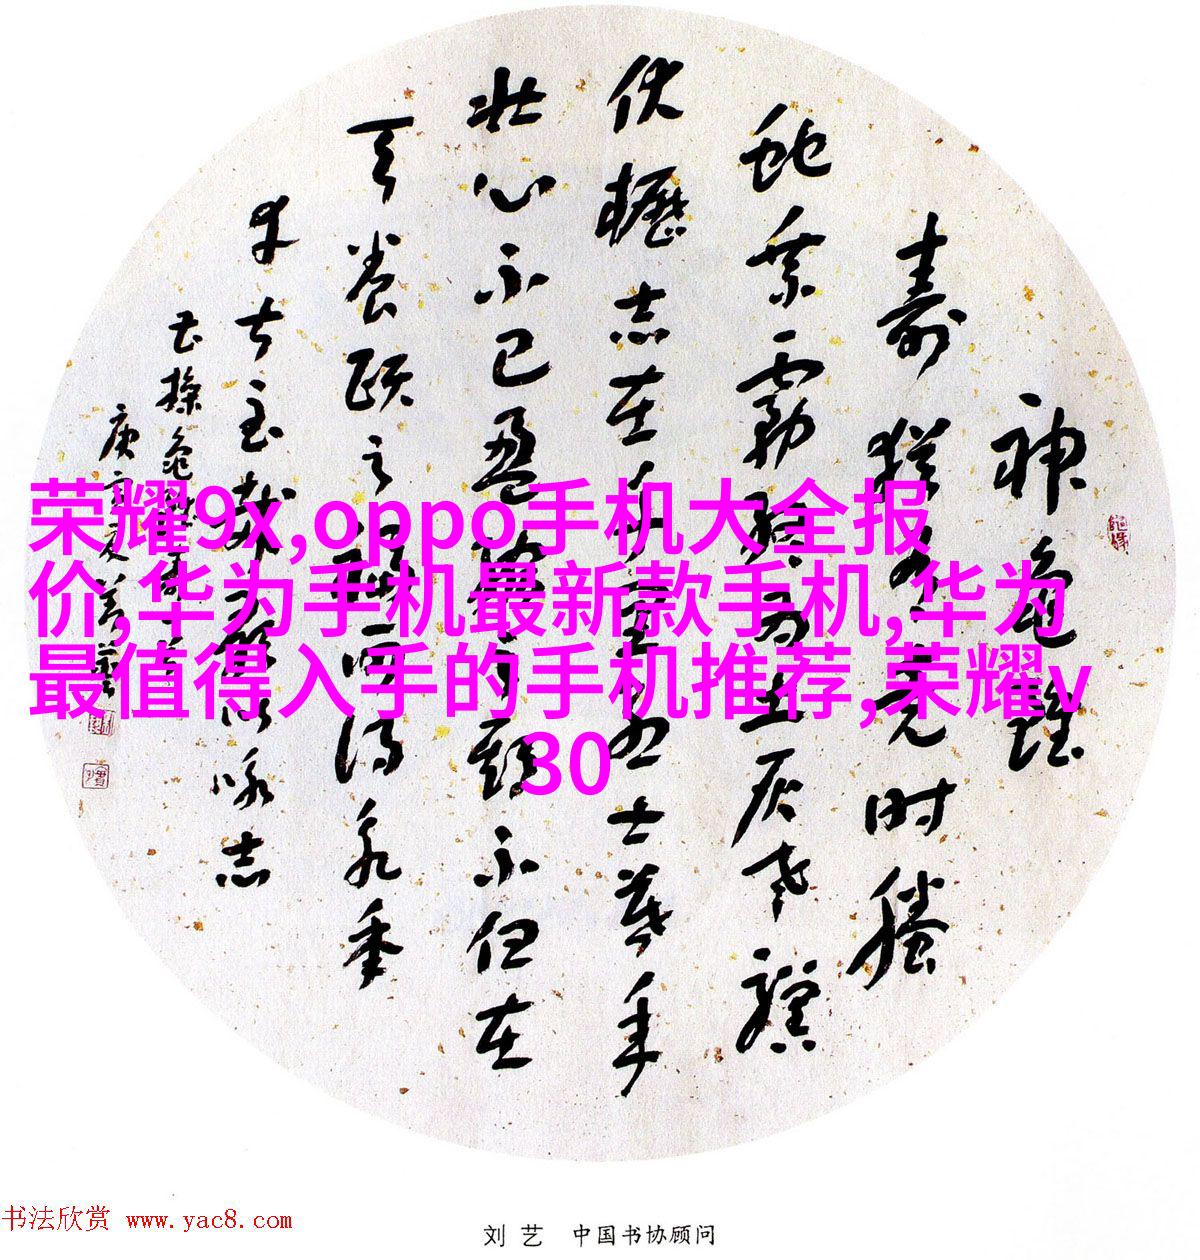 荣耀9x,oppo手机大全报
价,华为手机最新款手机,华为
最值得入手的手机推荐,荣耀v
30
神龟雖
寿猶有竟时腾
蛇乘霧终为土灰老骥
伏櫪志在千里烈士暮年
壮心不已盈缩之期不但在
天养颐之福可得永年
幸甚至哉歌以咏志
曹操龟虽寿
书法欣赏 www.yac8.com
刘艺 中国书协顾问